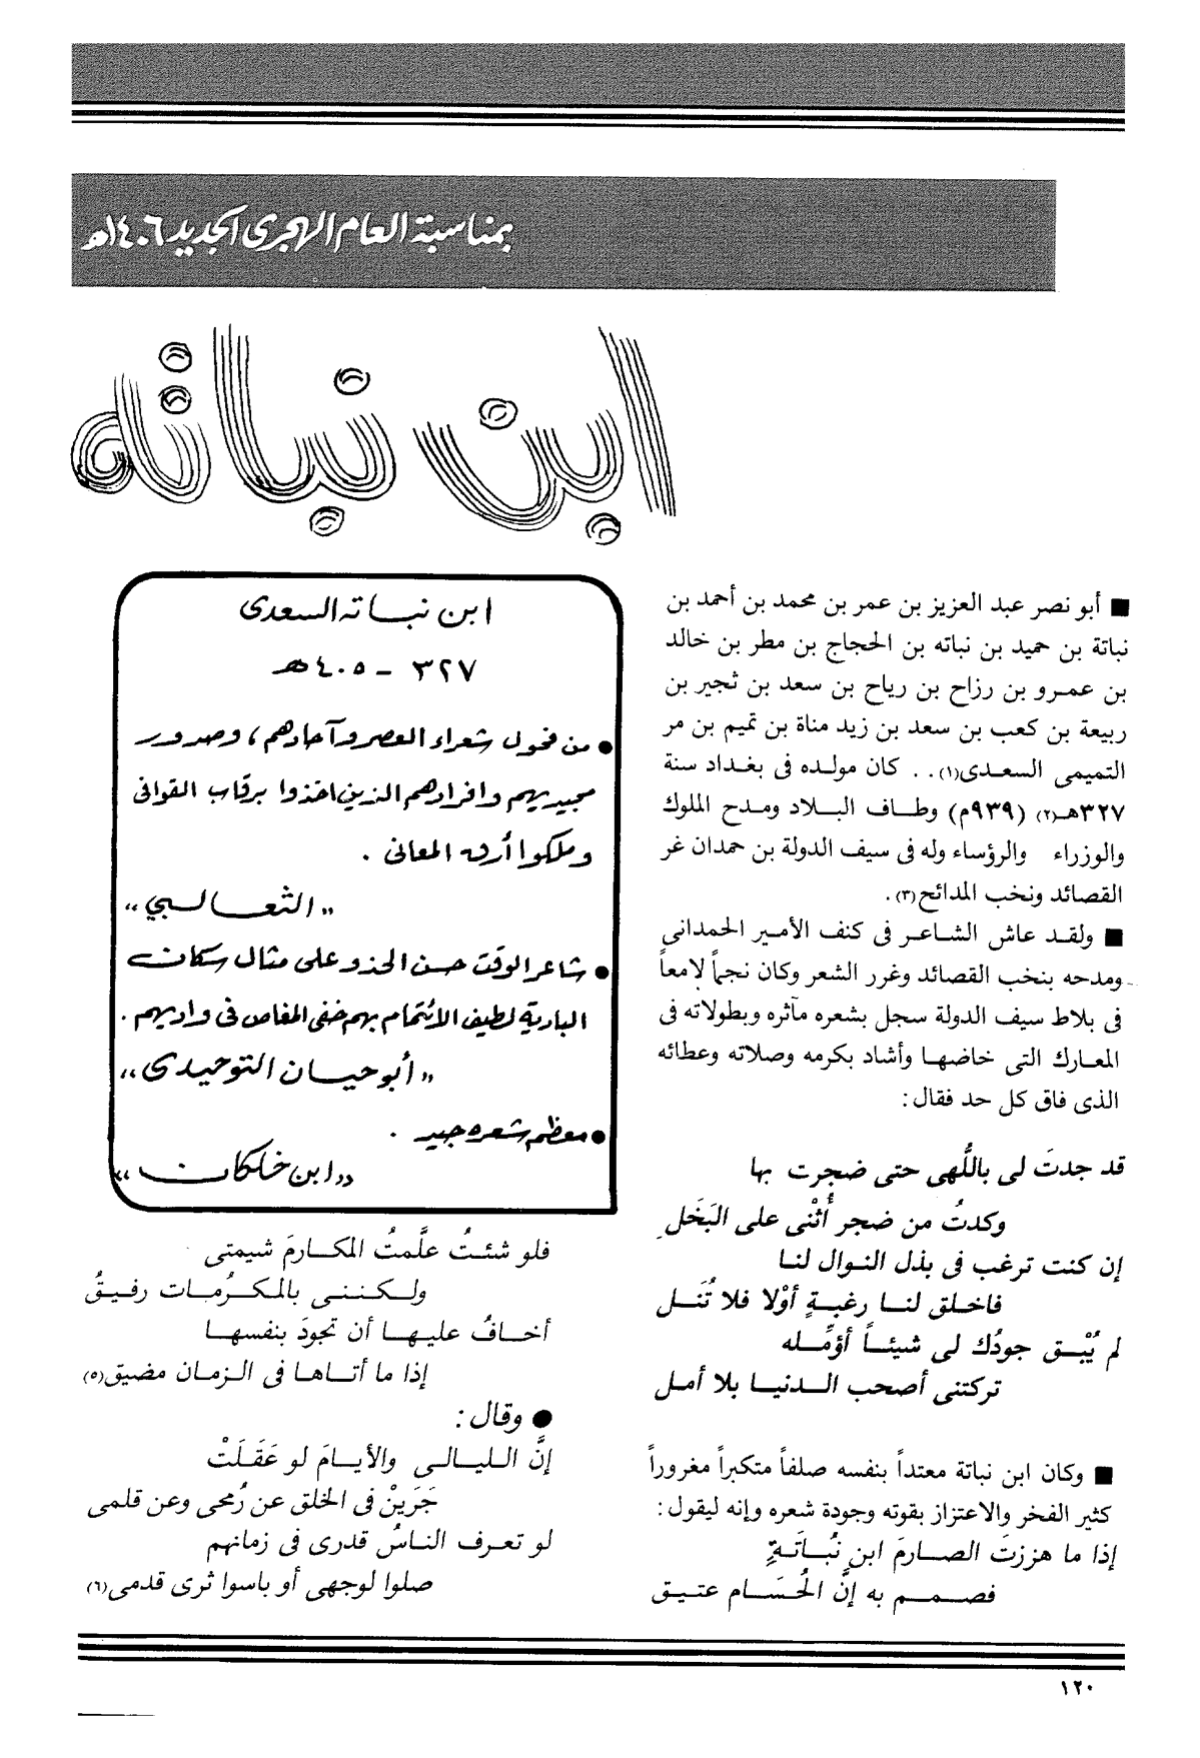 بمناسبة العام الهجرى الجديد ١٤٠٦هـ
ابن نباته
■ أبو نصر عبد العزيز بن عمر بن محمد بن أحمد بن
نباتة بن حميد بن نباته بن الحجاج بن مطر بن خالد
بن عمرو بن رزاح بن رياح بن سعد بن ثجير بن
ربيعة بن كعب بن سعد بن زيد مناة بن تميم بن مر
التميمى السعدى(١).. كان مولده فى بغداد سنة
٣٢٧هـ(٢) (٩٣٩م) وطاف البلاد ومدح الملوك
والوزراء والرؤساء وله فى سيف الدولة بن حمدان غر
القصائد ونخب المدائح(٣).
■ ولقد عاش الشاعر فى كنف الأمير الحمدانى
ومدحه بنخب القصائد وغرر الشعر وكان نجماً لامعاً
فى بلاط سيف الدولة سجل بشعره مآثره وبطولاته فى
المعارك التى خاضها وأشاد بكرمه وصلاته وعطائه
الذى فاق كل حد فقال:
قد جدتَ لى باللُّهى حتى ضجرت بها
وكدتُ من ضجر أُثْنى على البَخَلِ
إن كنت ترغب فى بذل النوال لنا
فاخلق لنا رغبةٍ أوْلا فلا تُنَل
لم يُبْق جودُك لى شيئاً أؤمِّله
تركتنى أصحب الدنيا بلا أمل
■ وكان ابن نباتة معتداً بنفسه صلفاً متكبراً مغروراً
كثير الفخر والاعتزاز بقوته وجودة شعره وإنه ليقول:
إذا ما هززتَ الصارمَ ابن نُبَاتَةٍ
فصمم به إنَّ الحُسَام عتيق
ابن نباته السعدى
٣٢٧ - ٤٠٥هـ
● من فحول شعراء العصر وآحادهم، وصدور
مجيديهم وافرادهم الذين اخذوا برقاب القوافى
وملكوا أرق المعانى.
"الثعالبي"
● شاعر الوقت حسن الحذو على مثال سكان
البادية لطيف الائتمام بهم خفى المغاص فى واديهم.
"أبو حيان التوحيدى"
● معظم شعره جيد.
"ابن خلكان"
فلو شئتُ علَّمتُ المكارمَ شيمتى
ولكننى بالمكرُمات رفيقُ
أخافُ عليها أن تجودَ بنفسها
إذا ما أتاها فى الزمان مضيق(٥)
● وقال:
إنَّ الليالى والأيامَ لو عَقَلَتْ
جَرَيْن فى الخلق عن رُمحى وعن قلمى
لو تعرف الناسُ قدرى فى زمانهم
صلوا لوجهى أو باسوا ثرى قدمى(٦)
١٢٠